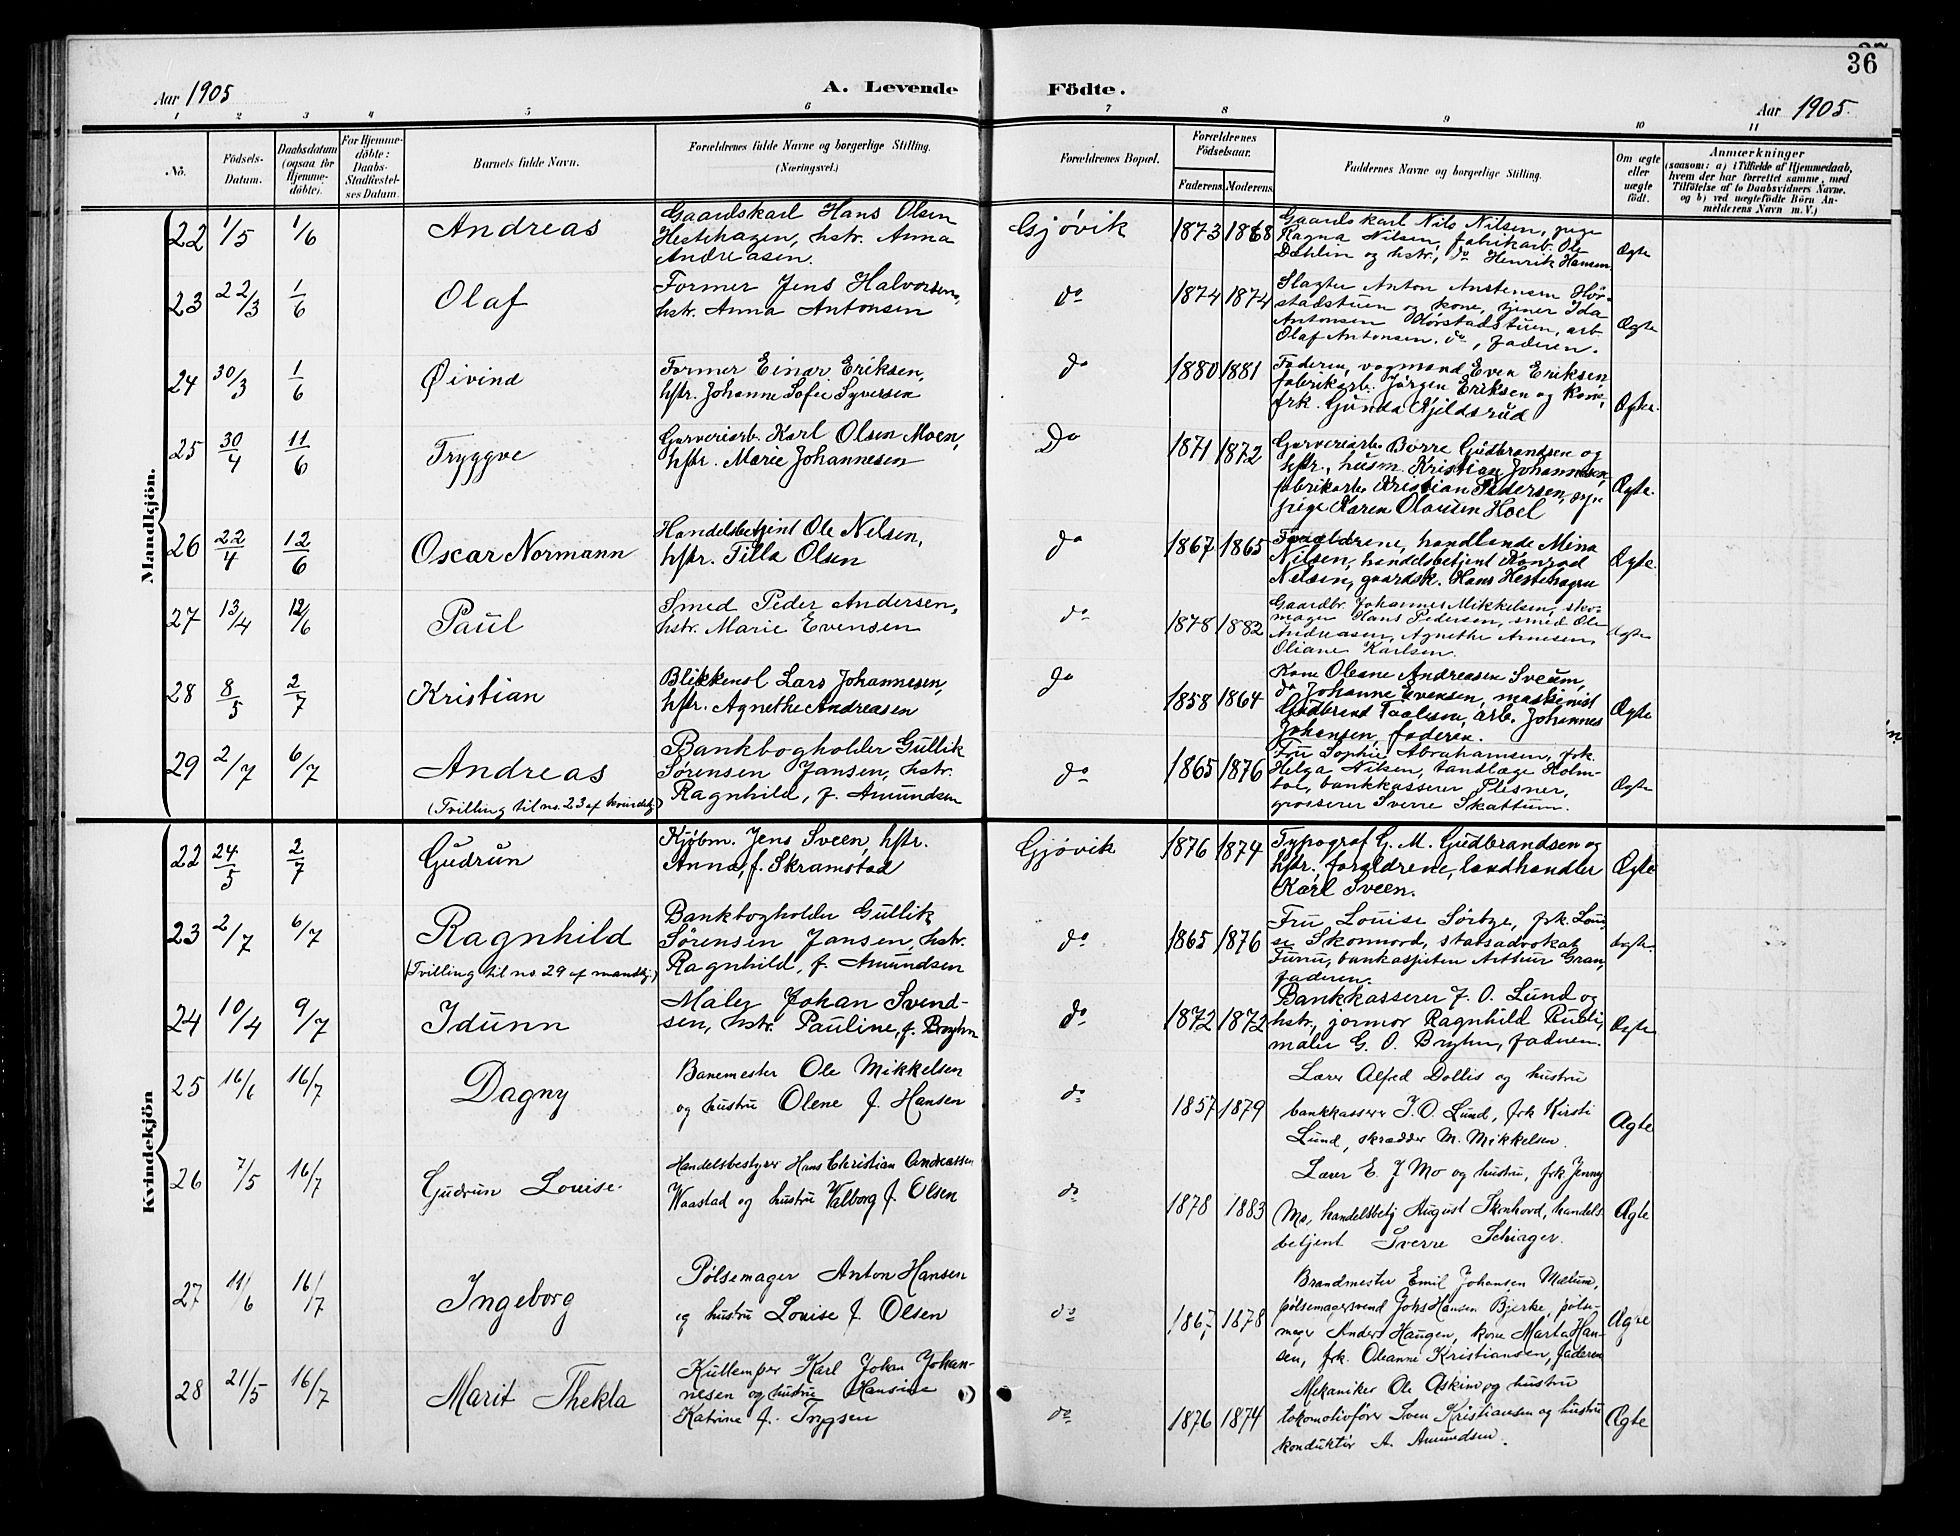 36
Aar 1905
A. Levende Födte.
Aar 1905.
1 2 3 4 5 6 7 8 9 10 11
No.
Födsels-Datum.
Daabsdatum (ogsaa for Hjemmedöbte).
For Hjemmedöbte: Daabs-Stadfæstelses Datum
Barnets fulde Navn.
Forældrenes fulde Navne og borgerlige Stilling.
(Næringsvei.)
Forældrenes Bopæl.
Forældrenes Födselsaar.
Faderens Moderens
Faddernes Navne og borgerlige Stilling.
Om ægte eller uægte födt.
Anmærkninger
(saasom: a) i Tilfælde af Hjemmedaab,
hvem der har forrettet samme, med
Tilföielse af to Daabsvidners Navne,
og b) ved uægtefödte Börn An-
melderens Navn m. V.)
Mandkjön.
22 1/5 1/6 Andreas
Gaardskarl Hans Olsen
Hestehagen, hstr. Anna
Andreasen.
Gjøvik 1873 1868
Gaardskarl Nils Nilsen, pige
Ragna Nilsen, fabrikarb. Ole
Dæhlin og hstr., do Henrik Hansen
Ægte
23 22/3 1/6 Olaf
Former Jens Halvorsen,
hstr. Anna Antonsen
do 1874 1874
Slagter Anton Austensen Hör-
stadstuen og kone, tjener Ida
Antonsen Hörstadstuen, arb.
Olaf Antonsen, do, faderen.
Ægte
24 30/3 1/6 Øivind
Former Einar Eriksen,
hstr. Johanne Sofie Syversen
do 1880 1881
Faderen, vognmand Even Eriksen
fabrikarb. Jörgen Eriksen og kone,
frk. Gunda Kjeldsrud
Ægte.
25 30/4 11/6 Tryggve
Garveriarb. Karl Olsen Moen,
hstr. Marie Johannesen
Do 1871 1872
Garveriarb. Börre Gudbrandsen og
hstr., husm. Kristian Johannesen,
fabrikarb. Kristian Pedersen,
pige Karen Olausen Hoel
Ægte.
26 22/4 12/6 Oscar Normann
Handelsbetjent Ole Nilsen,
hstr. Tilla Olsen
do 1867 1865
Forældrene, handlende Mina
Nilsen, handelsbetjent Konrad
Nilsen, gaardsk. Hans Hestehagen
Ægte.
27 13/4 12/6 Paul
Smed Peder Andersen,
hstr. Marie Evensen
do 1878 1882
Gaardbr. Johannes Mikkelsen, sko-
mager Hans Pedersen, smed Ole
Andreasen, Agnethe Arnesen,
Oliane Karlsen.
Ægte
28 8/5 2/7 Kristian
Blikkensl. Lars Johannesen,
hstr. Agnethe Andreasen
do 1858 1864
Kone Oleane Andreasen Sveum,
do Johanne Evensen, maskinist
Gudbrand Paulsen, arb. Johannes
Johansen, faderen.
Ægte
29 2/7 6/7 Andreas
(Tvilling til no. 23 af kvindekj.)
Bankbogholder Gullik
Sørensen Jansen, hstr.
Ragnhild, f. Amundsen
do 1865 1876
Fru Sophie Abrahamsen, frk.
Helga Nilsen, tandlæge Holm-
boe, bankkasserer Plesner,
grosserer Sverre Skattum.
Ægte
Kvindekjön
22 24/5 2/7 Gudrun
Kjøbm. Jens Sveen, hstr.
Anna, f. Skramstad
Gjøvik 1876 1874
Typograf G. M. Gudbrandsen og
hstr., forældrene, landhandler
Karl Sveen.
Ægte
23 2/7 6/7 Ragnhild
(Tvilling til no. 29 af mandkj.)
Bankbogholder Gullik
Sørensen Jansen, hstr.
Ragnhild, f. Amundsen
do 1865 1876
Fru Louise Sörbye, frk. Loui-
se Skonnord, statsadvokat
Furu, bankassistent Arthur Gran,
faderen.
Ægte
24 10/4 9/7 Idunn
Maler Johan Svend-
sen, hstr. Pauline, f. Bryhn
do 1872 1872
Bankkasserer J. O. Lund og
hstr., jormor Ragnhild
maler G. O. Bryhn, faderen.
Ægte
25 16/6 16/7 Dagny
Banemester Ole Mikkelsen
og hustru Olene f. Hansen
do 1857 1879
Lærer Alfred Dollis og hustru
bankkasserer J. O. Lund, frk Kirsti
Lund, skrædder M. Mikkelsen.
Ægte
26 7/5 16/7 Gudrun Louise.
Handelsbestyrer Hans Christian Andreassen
Waastad og hustru Valborg f. Olsen
do 1878 1883
Lærer E. J Mo og hustru, frk. Jenny
Mo, handelsbetj August Skonhord, handels-
betjent Sverre Schiager.
Ægte
27 11/6 16/7 Ingeborg
Pølsemager Anton Hansen
og hustru Louise f. Olsen
do 1867 1878
Brandmester Emil Johansen Mælum,
pølsemagersvend Johs Hansen Bjerke, pølse-
mager Anders Haugen, kone Marta Han-
sen, frk. Oleanne Kristiansen, faderen
Ægte
28 21/5 16/7 Marit Thekla
Kullemper Karl Johan Johan-
nesen og hustru Hansine
Katrine f. Trygsen
do 1876 1874
Mekaniker Ole Askim og hustru
lokomotivförer Sven Kristiansen og hustru
konduktör A. Amundsen.
Ægte